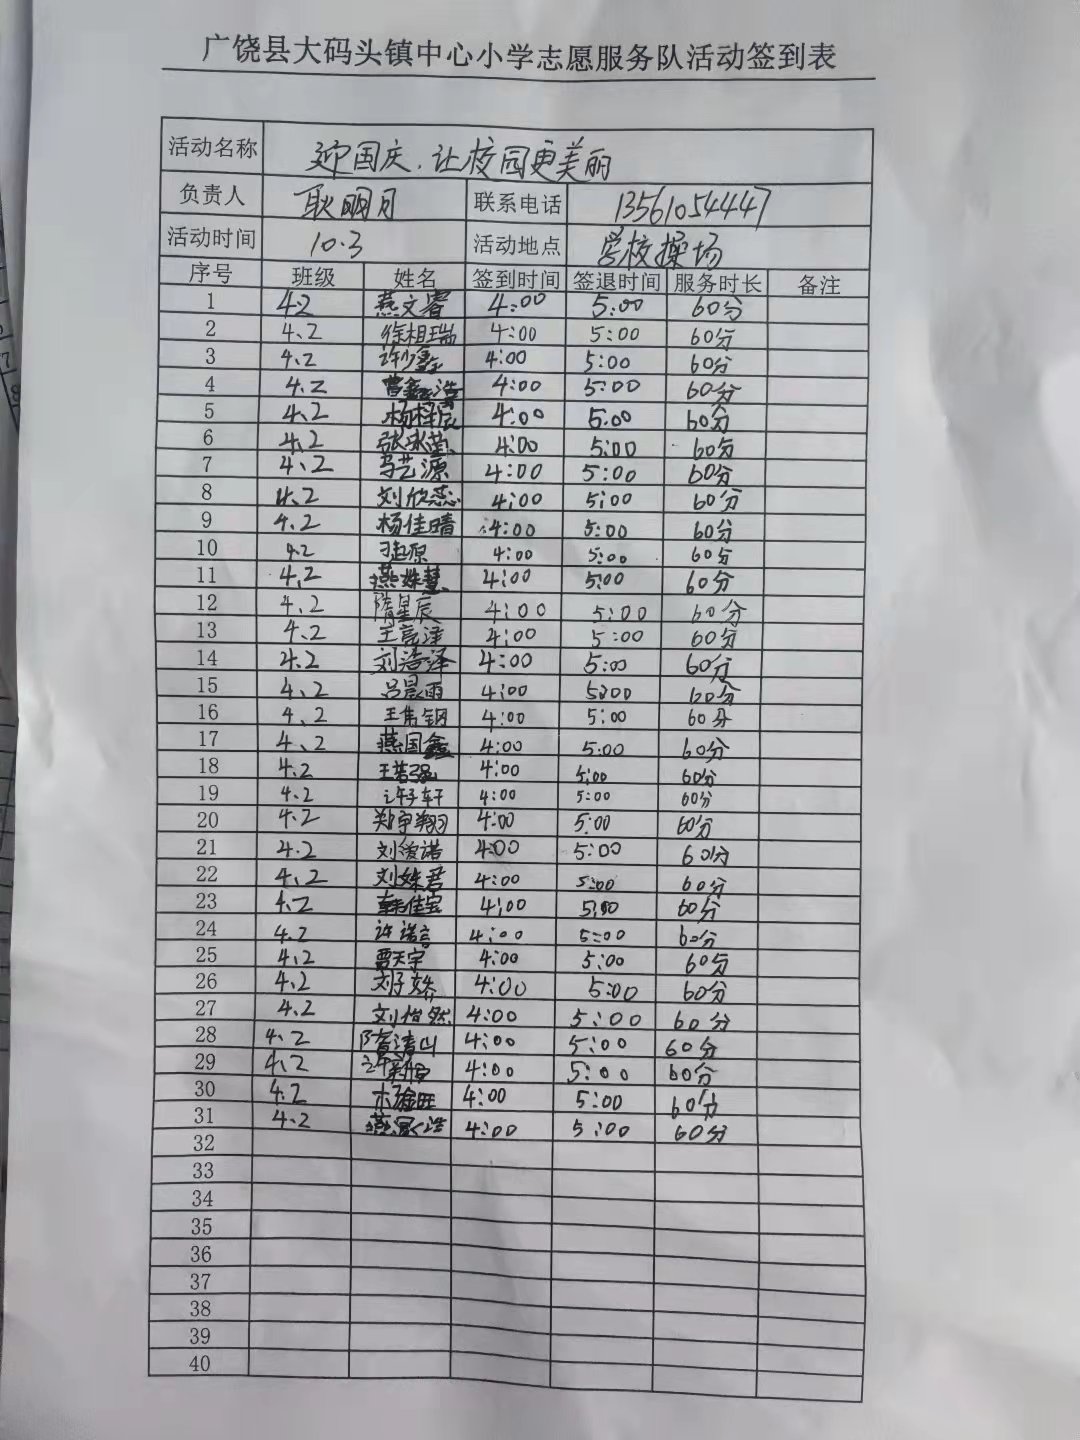 广饶县大码头镇中心小学志愿服务队活动签到表
活动名称 迎国庆.让校园更美丽
负责人 耿明月 联系电话 13561054447
活动时间 10.3 活动地点 学校操场
序号 班级 姓名 签到时间 签退时间 服务时长 备注
1 4.2 燕文睿 4:00 5:00 60分
2 4.2 徐相瑞 4:00 5:00 60分
3 4.2 许鑫 4:00 5:00 60分
4 4.2 曹鑫浩 4:00 5:00 60分
5 4.2 杨梓辰 4:00 5:00 60分
6 4.2 张冰莹 4:00 5:00 60分
7 4.2 马艺源 4:00 5:00 60分
8 4.2 刘欣 4:00 5:00 60分
9 4.2 杨佳晴 4:00 5:00 60分
10 4.2 4:00 5:00 60分
11 4.2 燕姝慧 4:00 5:00 60分
12 4.2 隋星辰 4:00 5:00 60分
13 4.2 王亮泽 4:00 5:00 60分
14 4.2 刘浩泽 4:00 5:00 60分
15 4.2 吕晨雨 4:00 5:00 60分
16 4.2 王隽钢 4:00 5:00 60分
17 4.2 燕国鑫 4:00 5:00 60分
18 4.2 王若强 4:00 5:00 60分
19 4.2 许子轩 4:00 5:00 60分
20 4.2 郑宇翔 4:00 5:00 60分
21 4.2 刘俊诺 4:00 5:00 60分
22 4.2 刘姝君 4:00 5:00 60分
23 4.2 韩佳宝 4:00 5:00 60分
24 4.2 许诺言 4:00 5:00 60分
25 4.2 贾天宇 4:00 5:00 60分
26 4.2 刘子娇 4:00 5:00 60分
27 4.2 刘怡然 4:00 5:00 60分
28 4.2 隋清山 4:00 5:00 60分
29 4.2 4:00 5:00 60分
30 4.2 4:00 5:00 60分
31 4.2 燕浩 4:00 5:00 60分
32
33
34
35
36
37
38
39
40